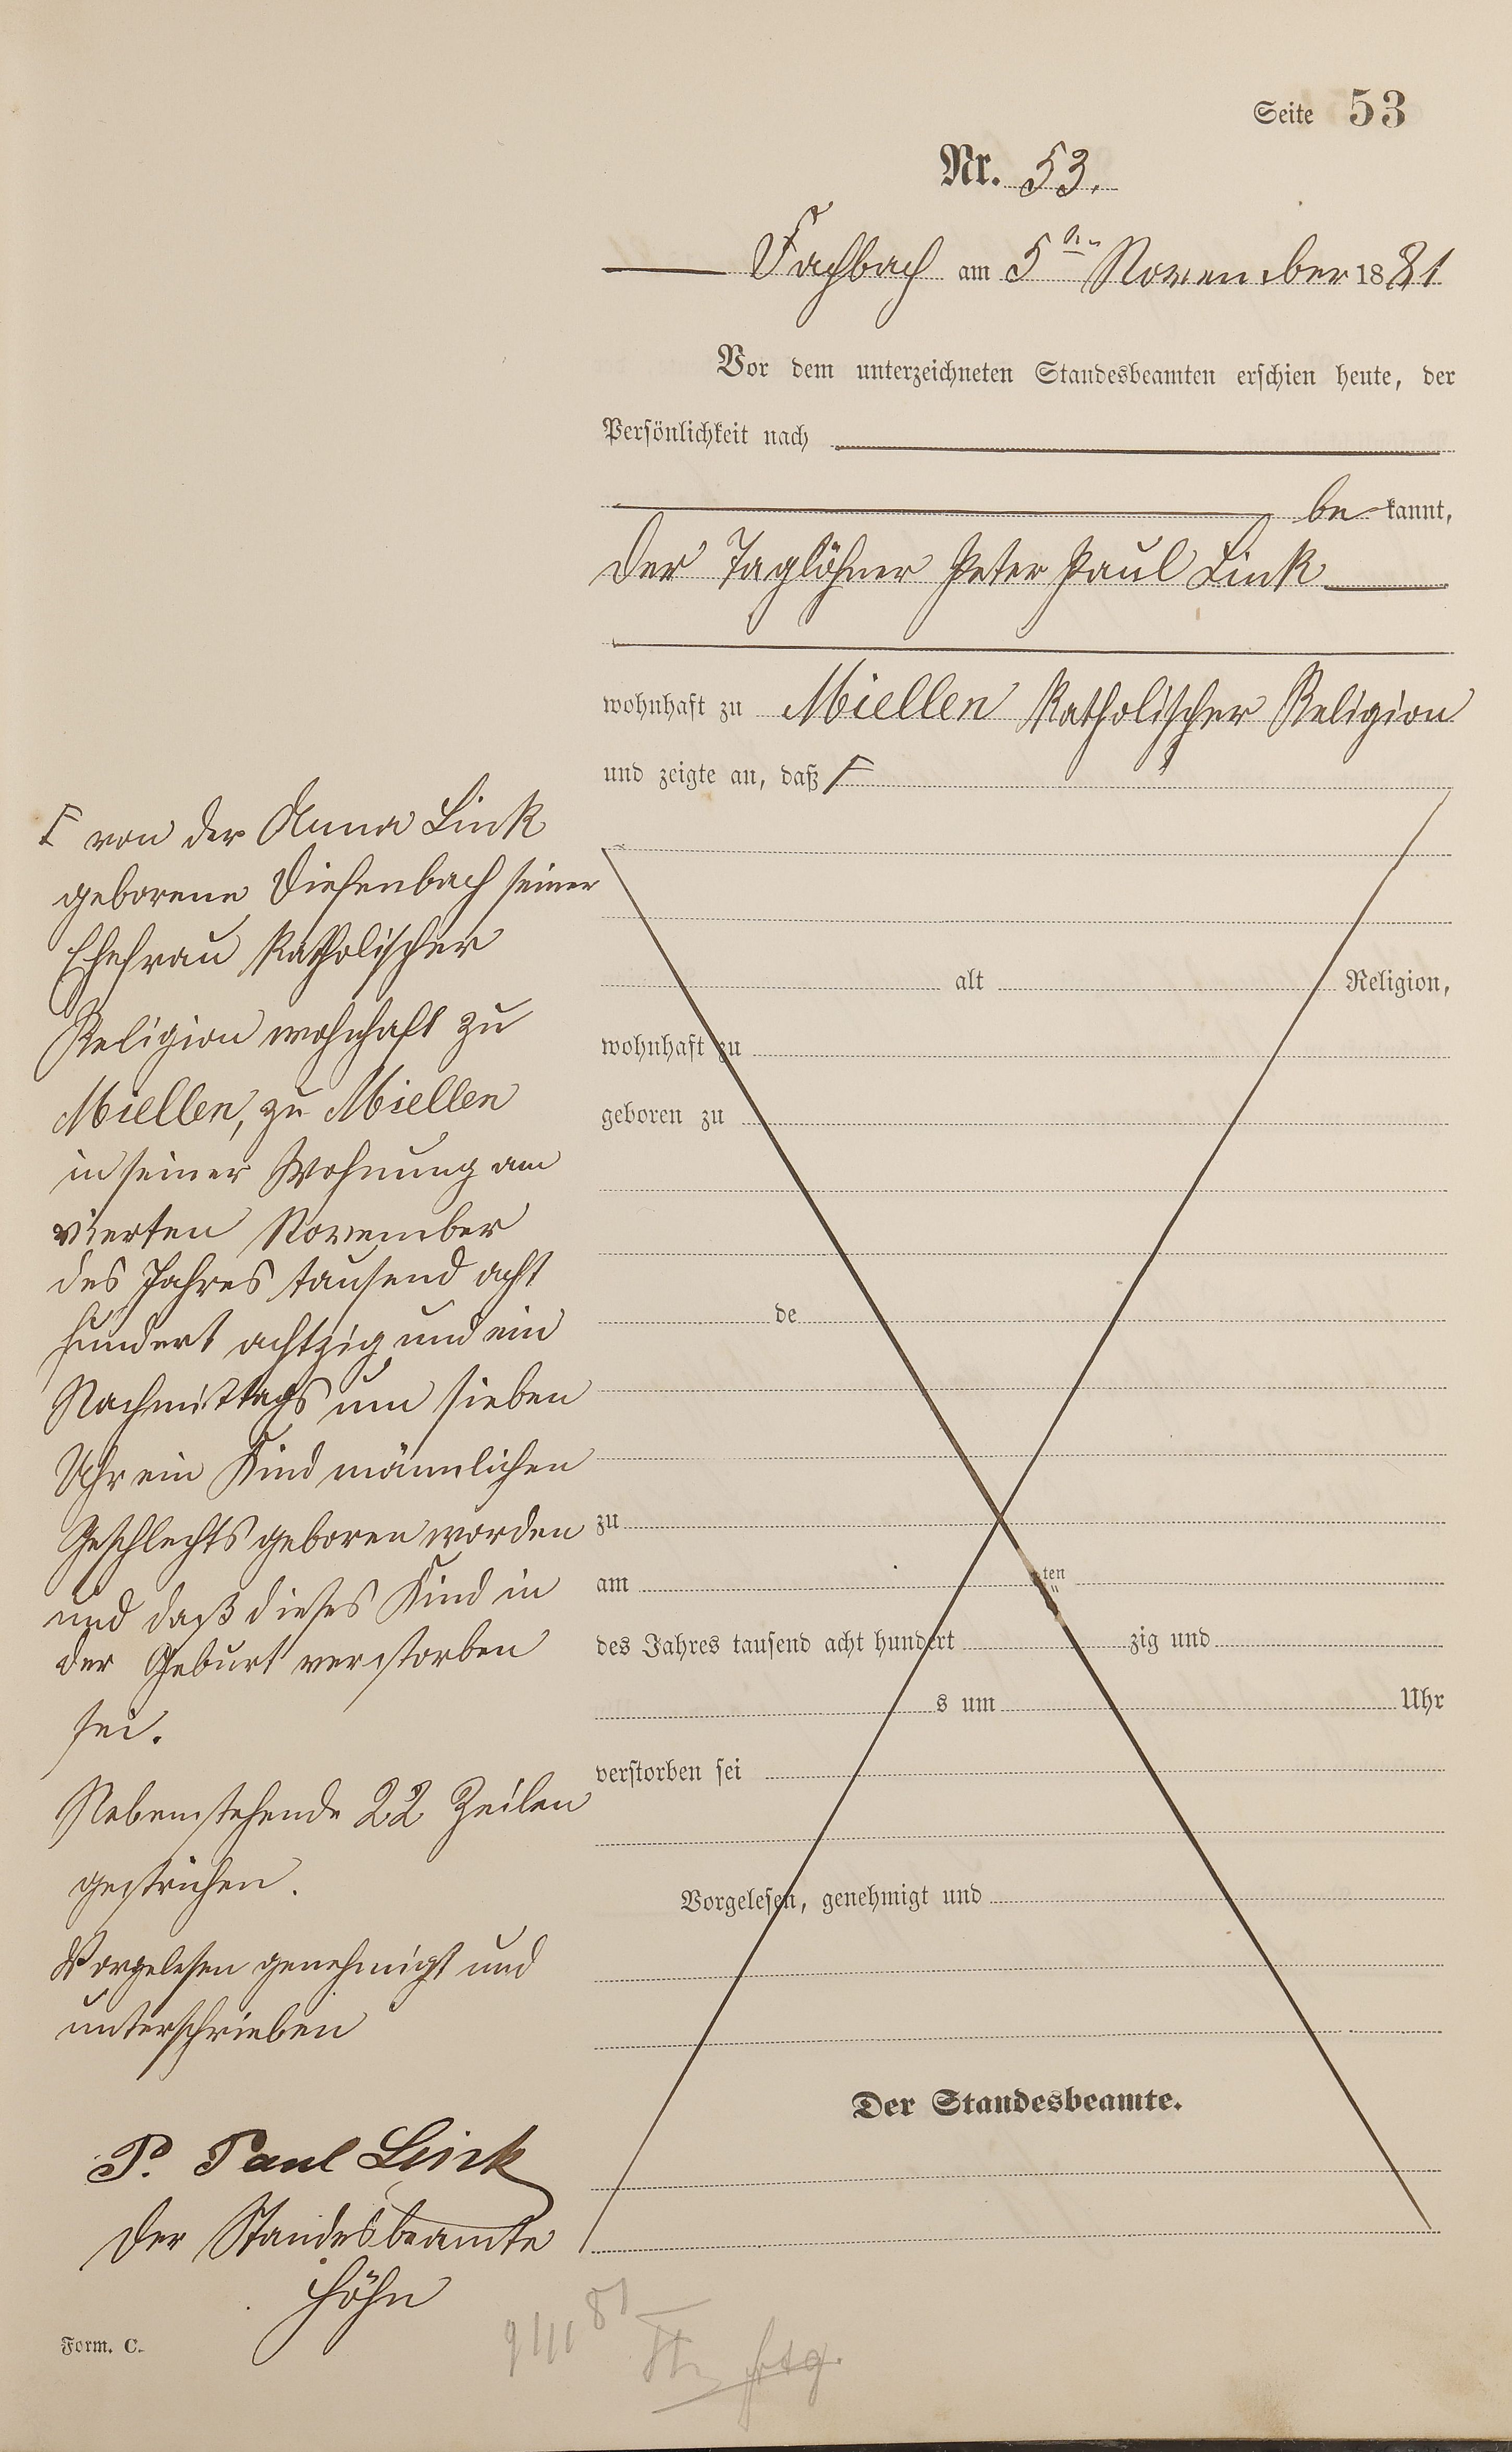 Seite 53
Nr. 53.
Fachbach am 5ten November 1881
Vor dem unterzeichneten Standesbeamten erschien heute, der
Persönlichkeit nach
be kannt,
der Taglöhner Peter Paul Link
wohnhaft zu Miellen katholischer Religion
und zeigte an, daß Γ
Γ von der Anna Link
geborene Diefenbach seiner
Ehefrau katholischer
Religion wohnhaft zu
Miellen, zu Miellen
in seiner Wohnung am
vierten November
des Jahres tausend acht
hundert achtzig und ein
Nachmittags um sieben
Uhr ein Kind männlichen
Geschlechts geboren worden
und daß dieses Kind in
der Geburt verstorben
sei.
Nebenstehende 22 Zeilen
gestrichen.
Vorgelesen genehmigt und
unterschrieben
P. Paul Link
Der Standesbeamte
Höhn
Form. C.
alt Religion,
wohnhaft zu
geboren zu
de
zu
am ten
des Jahres tausend acht hundert zig und
s um Uhr
verstorben sei
Vorgelesen, genehmigt und
Der Standesbeamte.